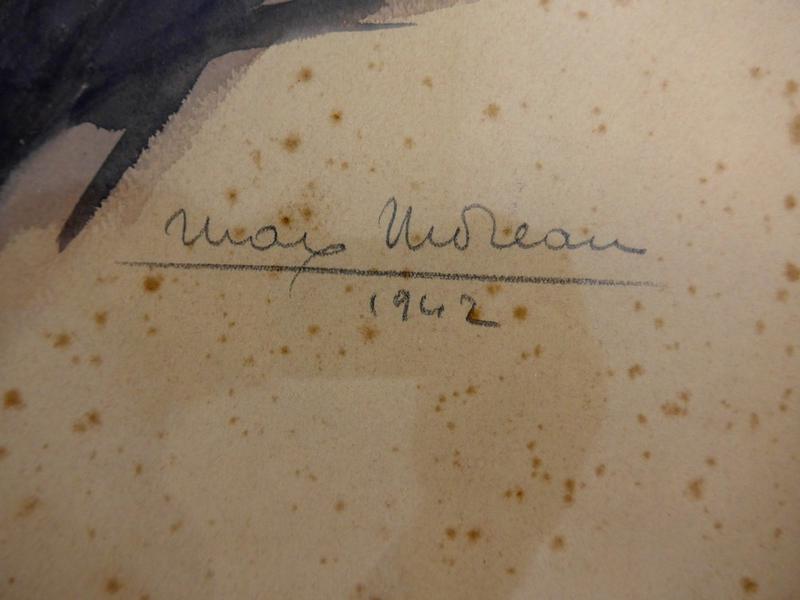 Max Moreau
1942